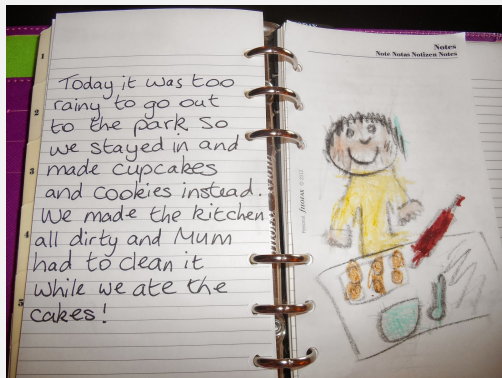 Today it was too
rainy to go out
to the park so
we stayed in and
made cupcakes
and cookies instead.
We made the kitchen
all dirty and Mum
had to clean it
while we ate the
cakes!
Notes
Note Notas Notizen Notes
1
2
3
4
5
filofax © 2012